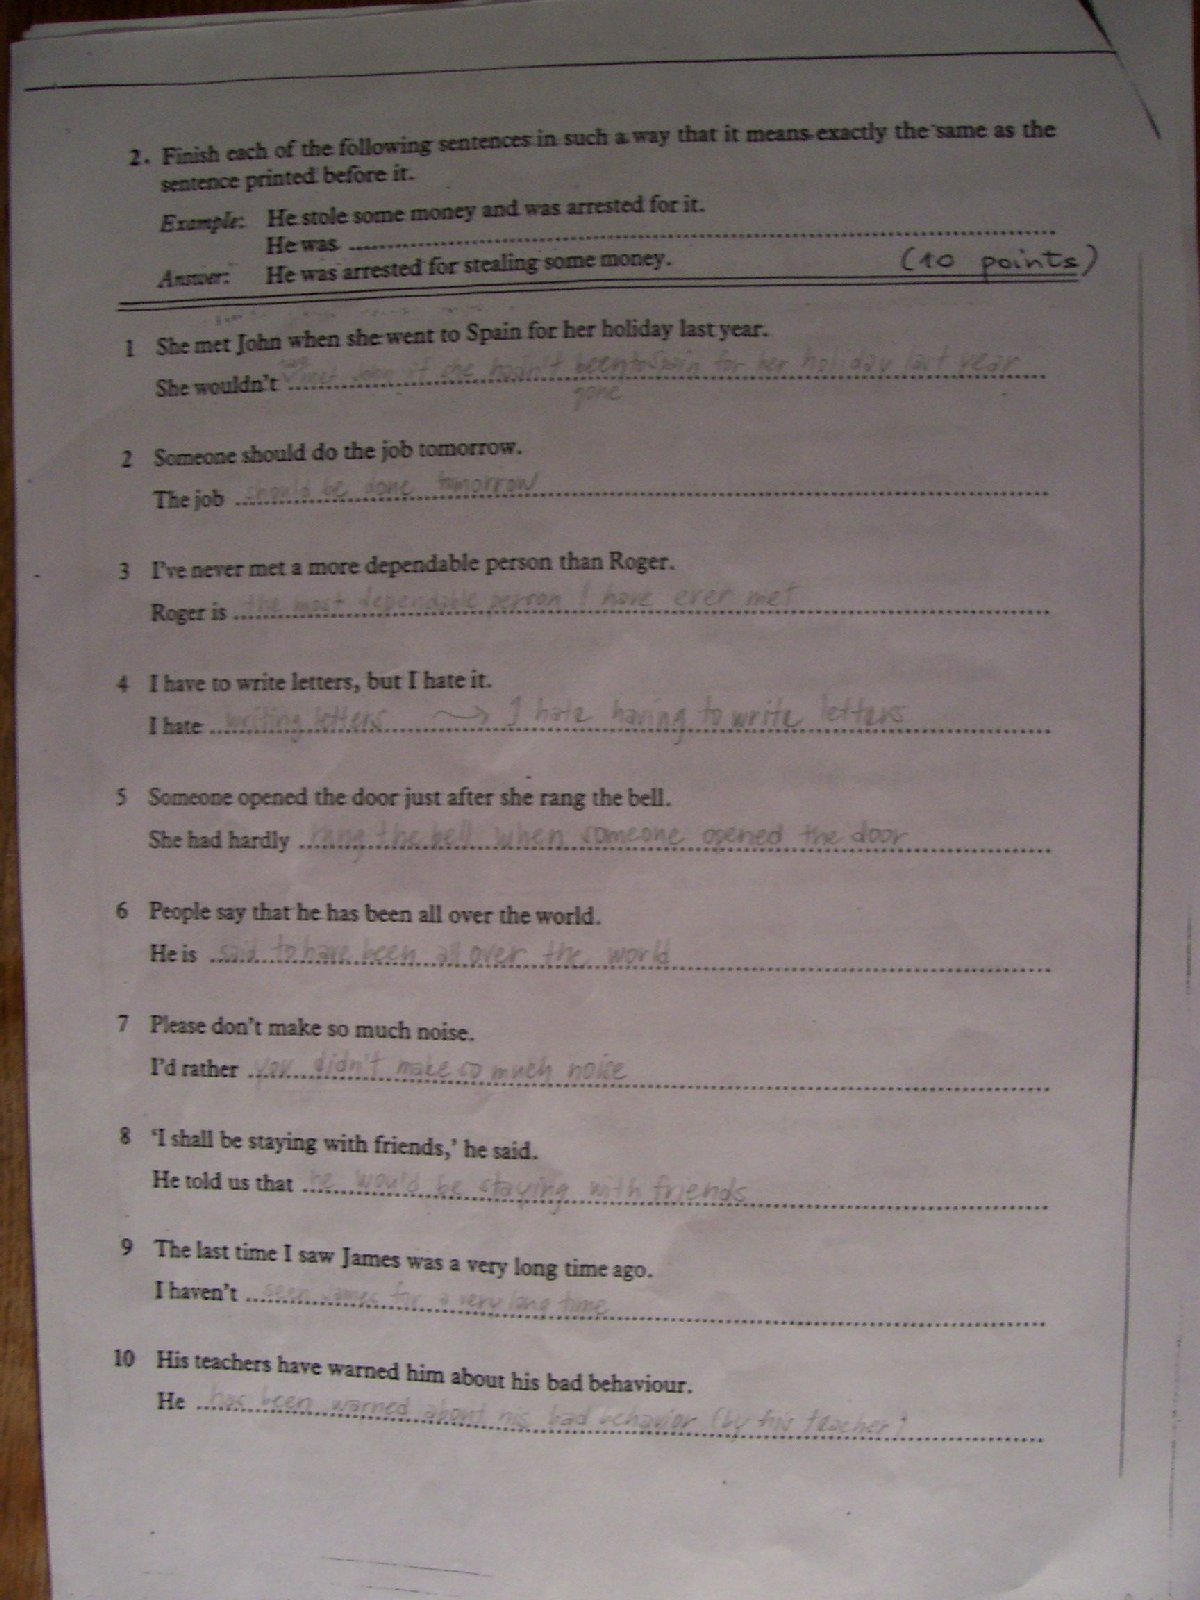 2. Finish each of the following sentences in such a way that it means exactly the same as the
sentence printed before it.
Example: He stole some money and was arrested for it.
He was ....................
Answer: He was arrested for stealing some money.
(10 points)
1 She met John when she went to Spain for her holiday last year.
have
She wouldn't met John if she hadn't been to Spain for her holiday last year
gone
2 Someone should do the job tomorrow.
The job should be done tomorrow
3 I've never met a more dependable person than Roger.
Roger is the most dependable person I have ever met
4 I have to write letters, but I hate it.
I hate writing letters → I hate having to write letters
5 Someone opened the door just after she rang the bell.
She had hardly rung the bell when someone opened the door
6 People say that he has been all over the world.
He is said to have been all over the world
7 Please don't make so much noise.
I'd rather you didn't make so much noise
8 'I shall be staying with friends,' he said.
He told us that he would be staying with friends
9 The last time I saw James was a very long time ago.
I haven't seen James for a very long time
10 His teachers have warned him about his bad behaviour.
He has been warned about his bad behavior (by his teacher)